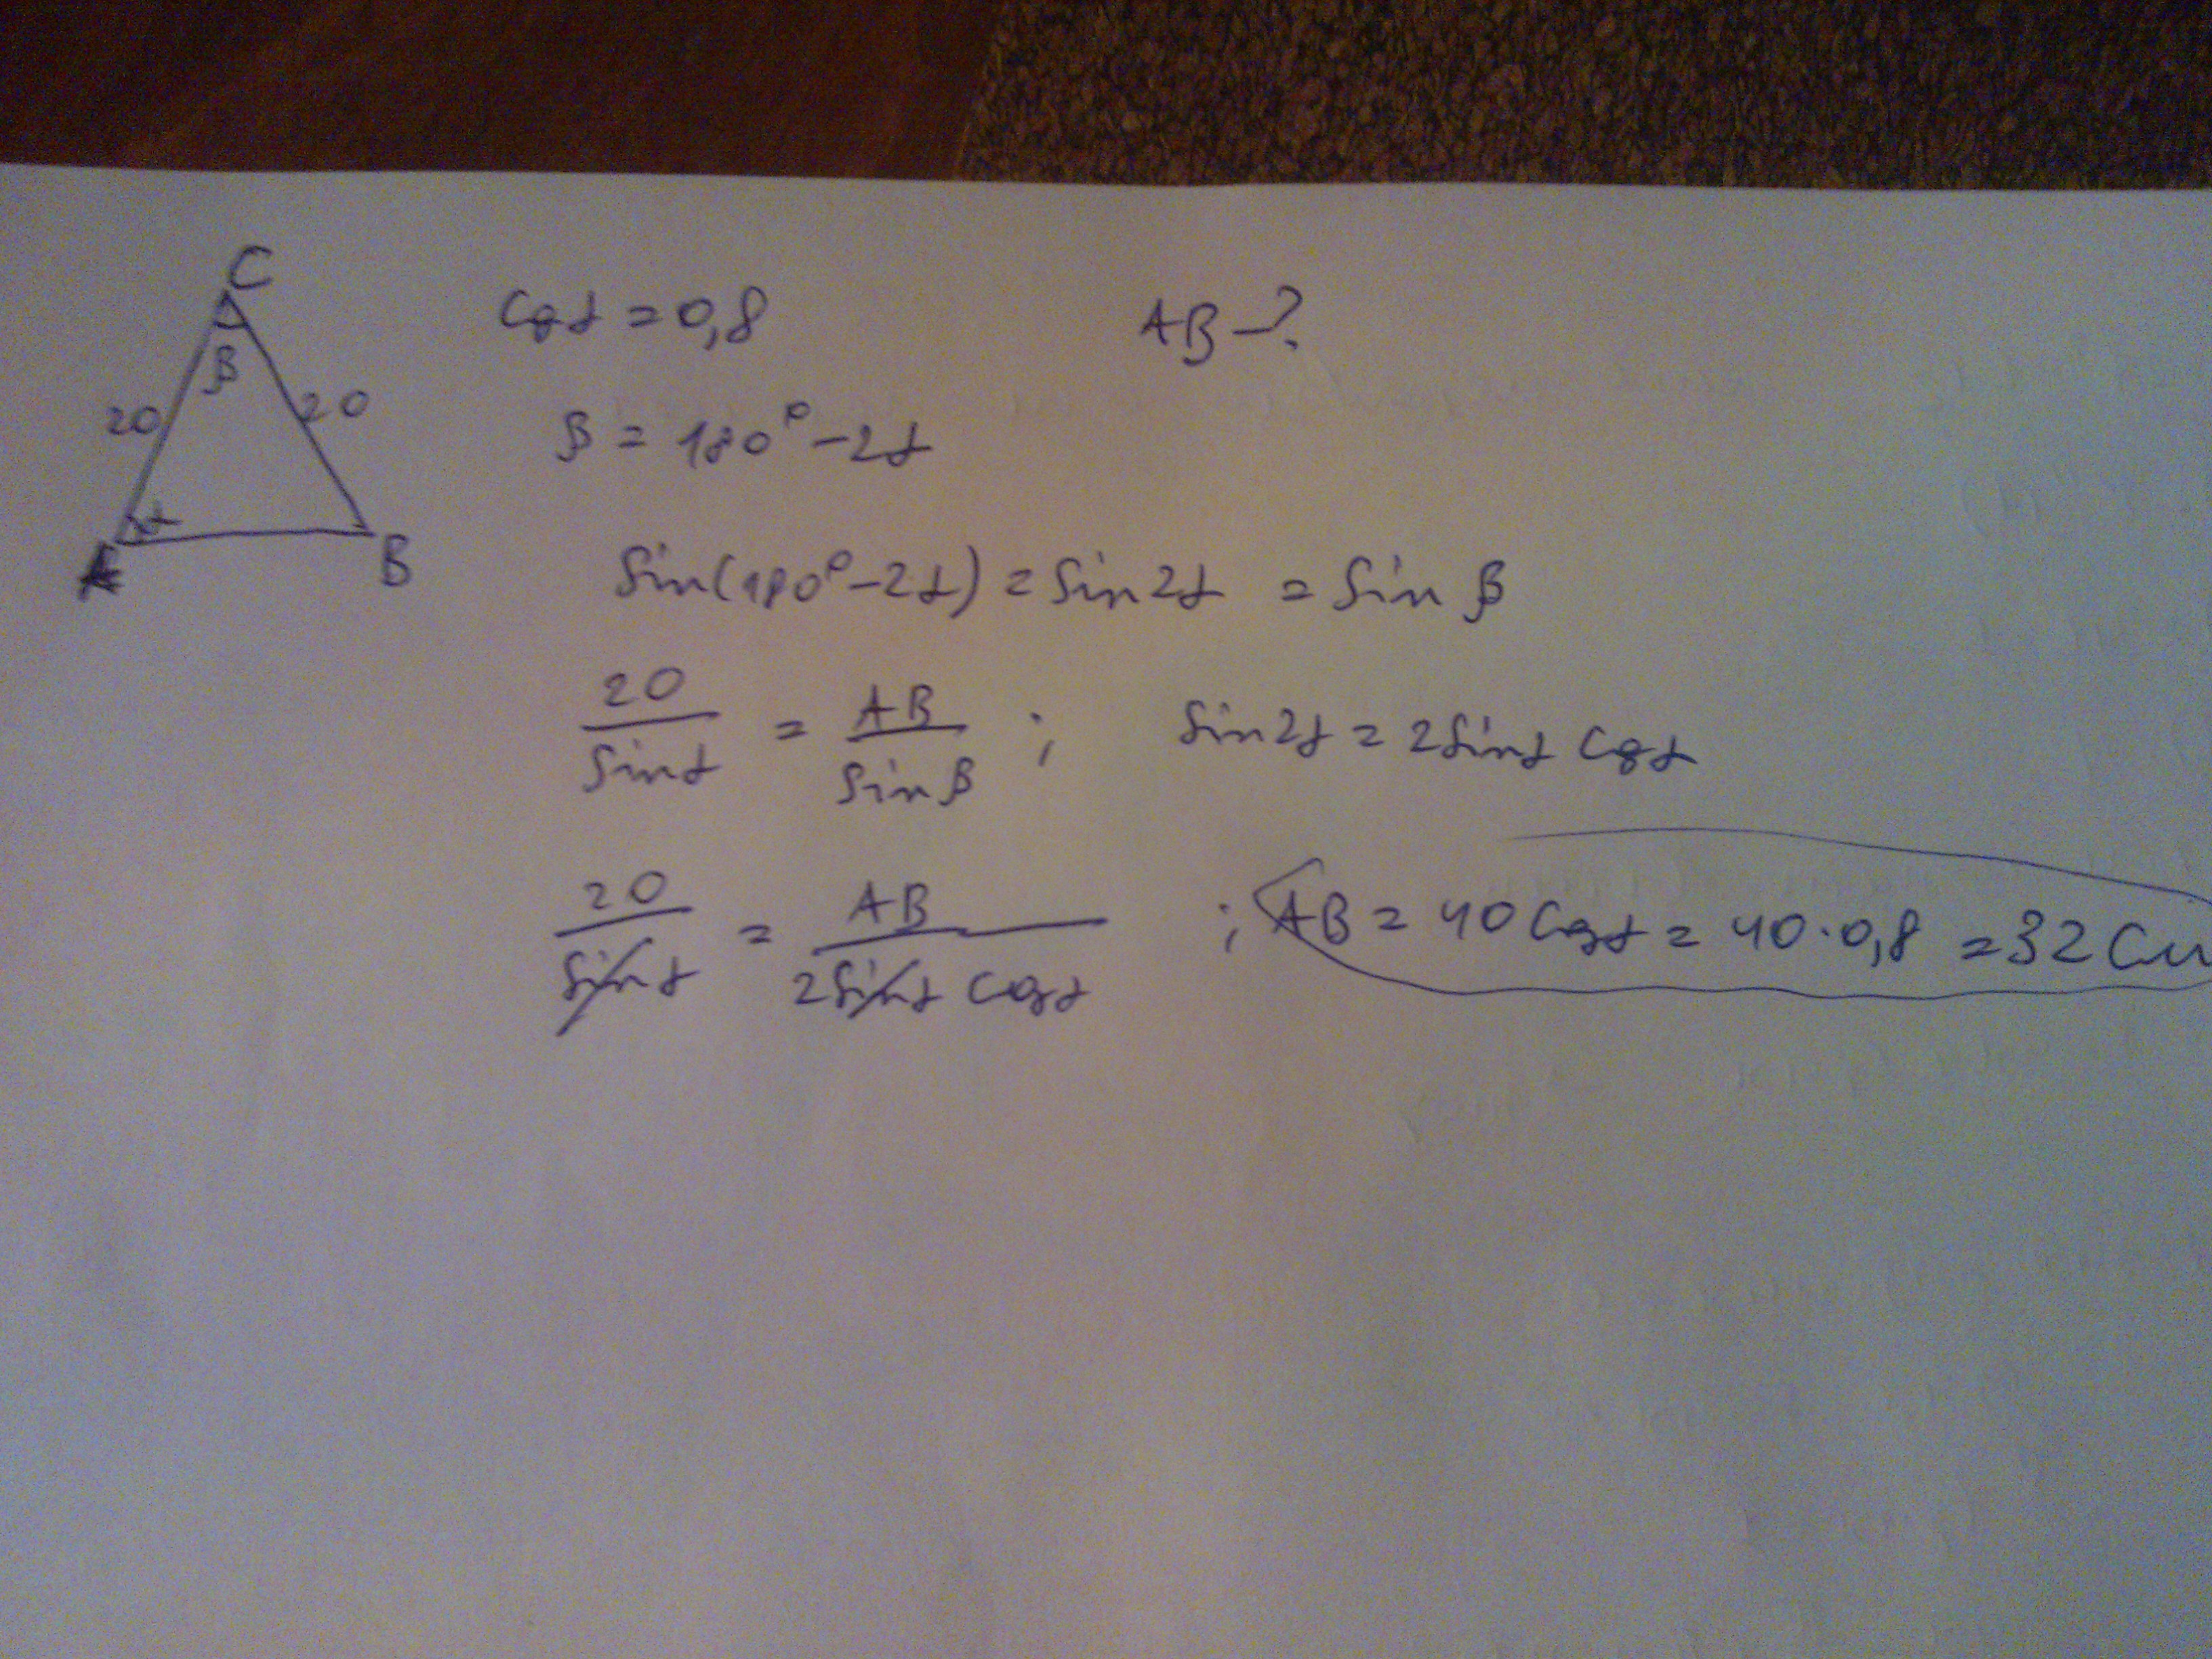 C
cos α = 0,8 AB - ?
β
20 20
β = 180° - 2α
α
A B
Sin(180° - 2α) = Sin2α = Sin β
20/Sinα = AB/Sinβ ; Sin2α = 2Sinα cosα
20/Sinα = AB/2Sinα cosα ; AB = 40 Cosα = 40·0,8 = 32 см